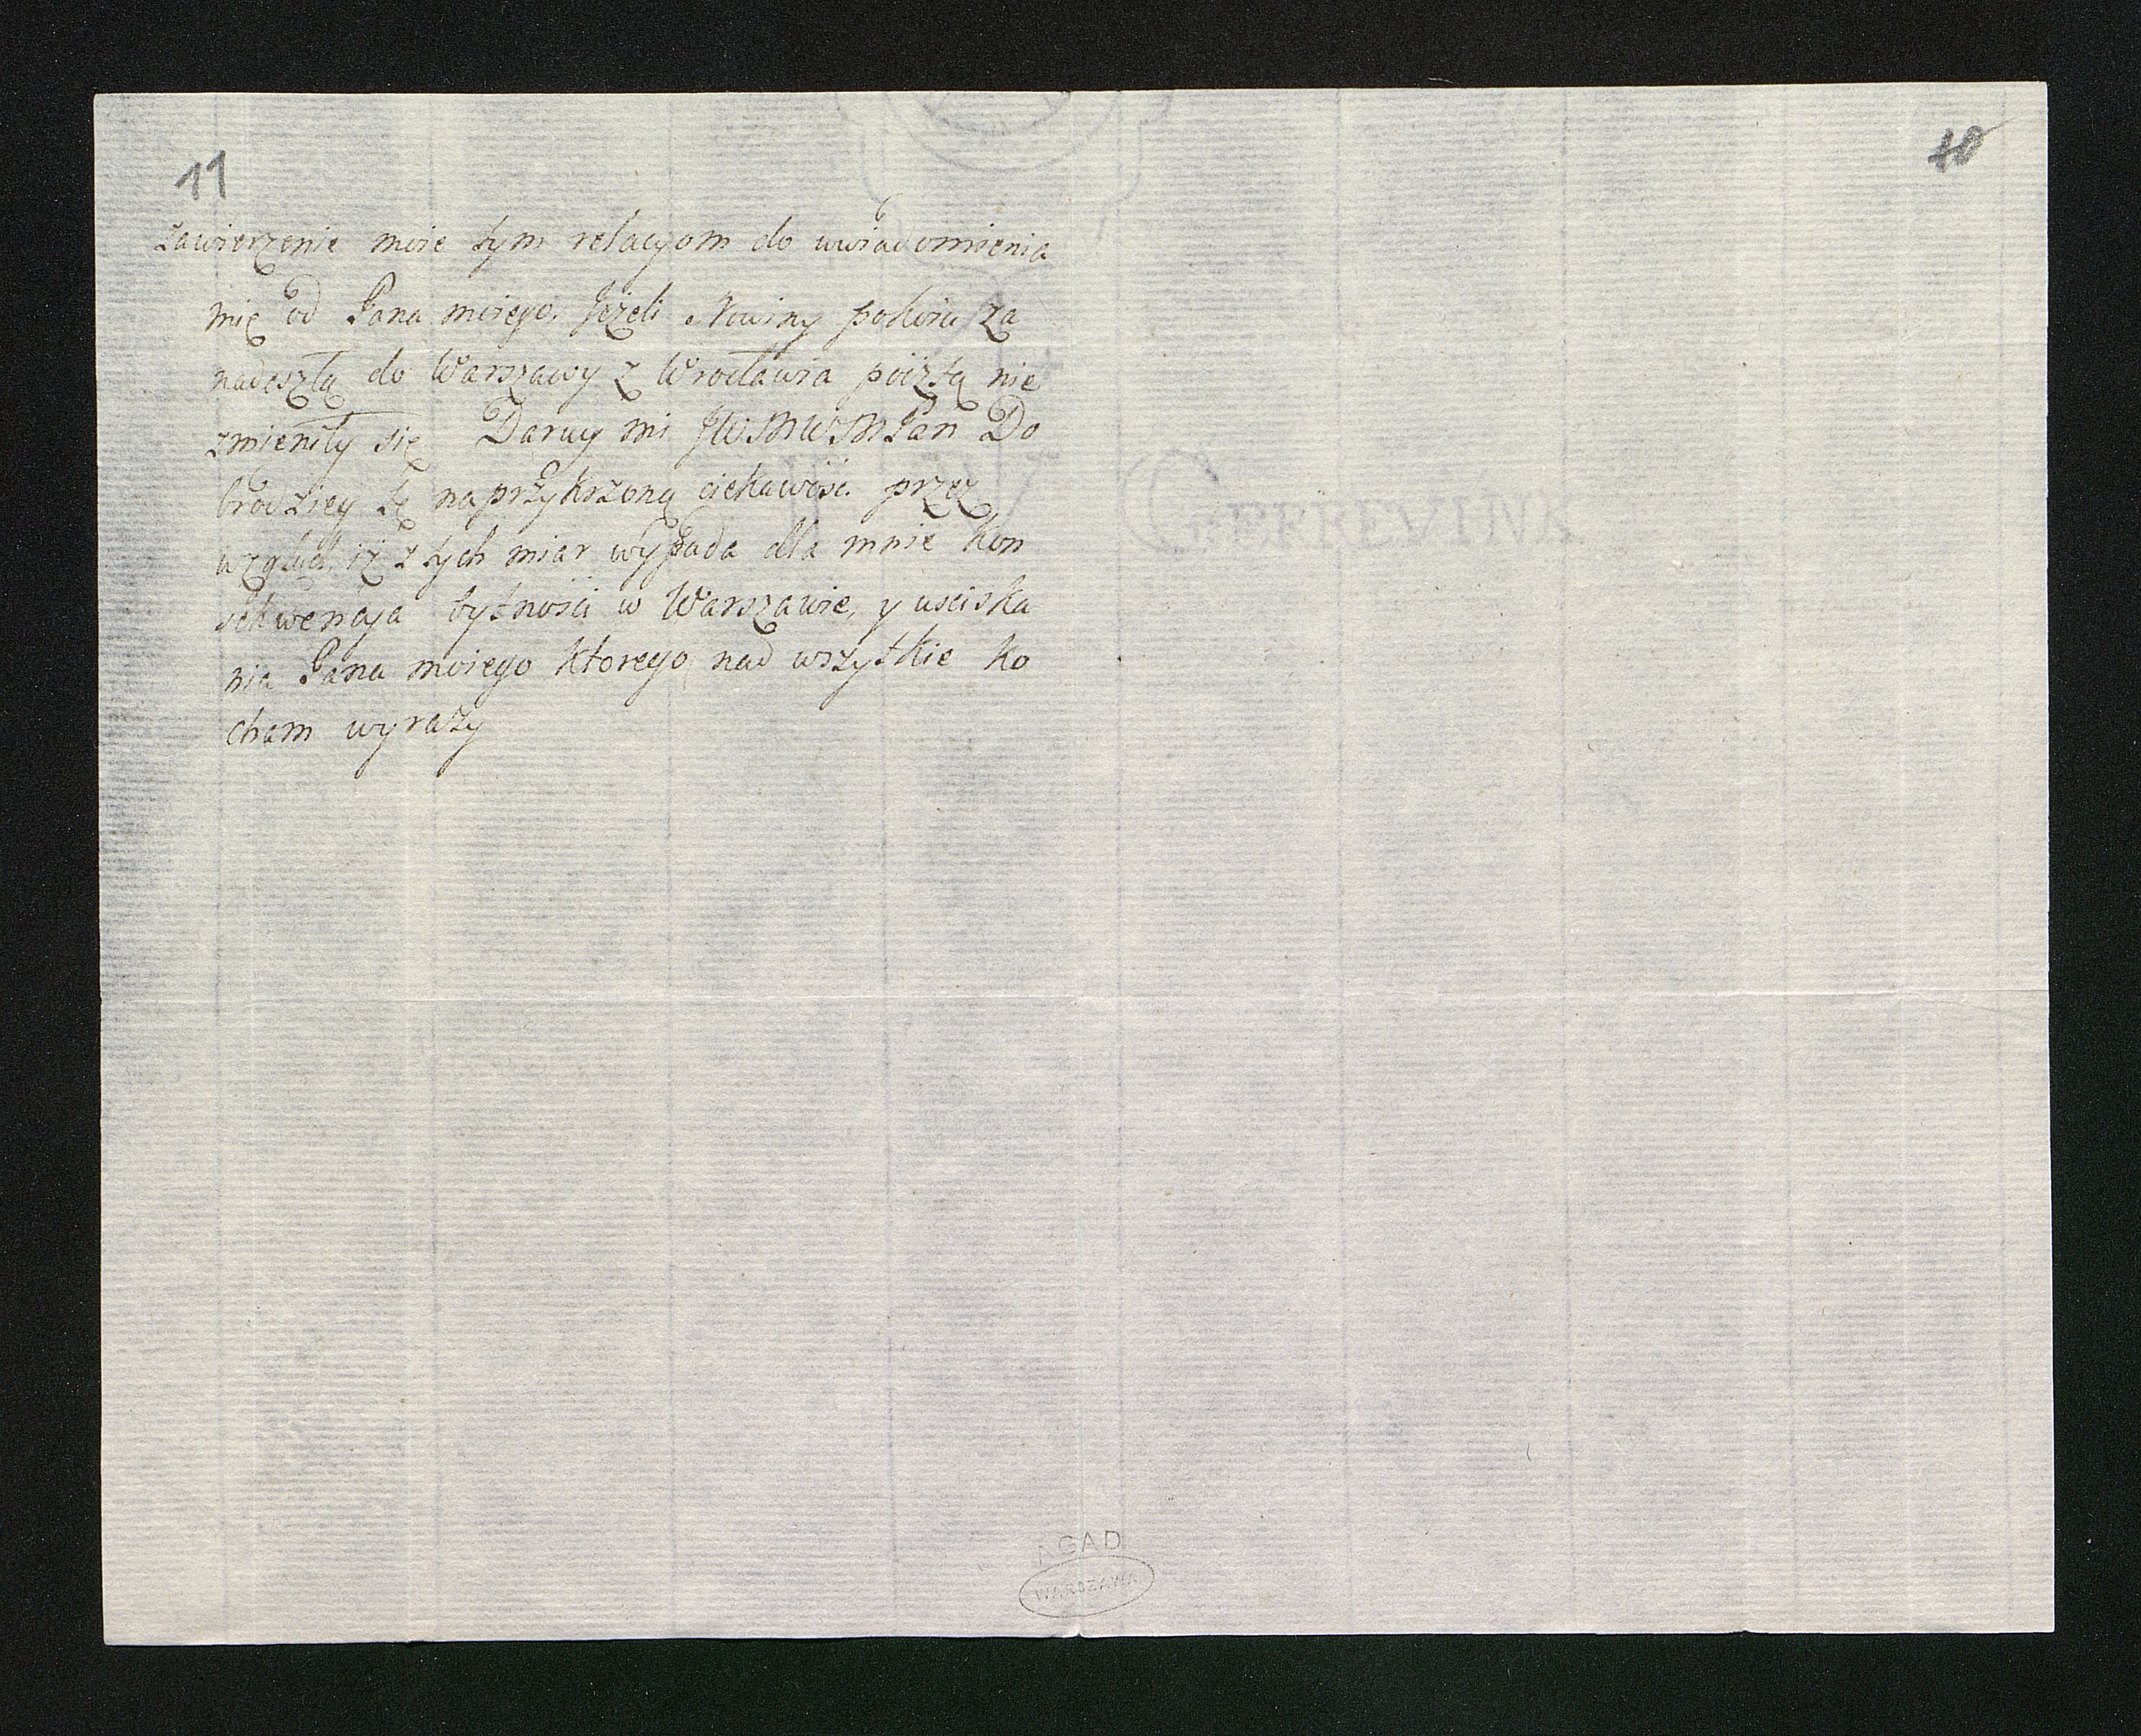 11
10
zawierzenie moie tym relacyom do uwiadomienia
mię od Pana moiego, Jeżeli Nowiny pokoiu za
nadeszłą do Warszawy z Wrocławia pocztą nie
zmieniły się Daruy mi JWMWMPan Do
brodziey tę naprzykrzoną ciekawość przez
wzgląd, iż z tych miar wypada dla mnie kon
sekwencya bytności w Warszawie, y usciska
nia Pana moiego ktorego nad wszytkie ko
cham wyrazy
AGAD
WARSZAWA